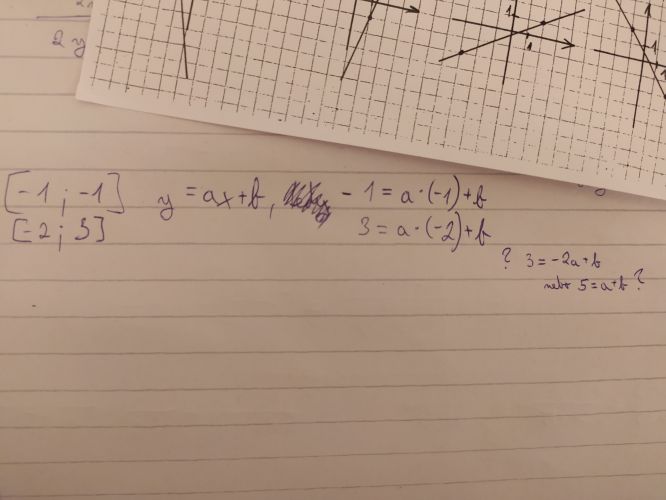 2 y
1
1
1
1
[-1 ; -1] y = ax+b, -1 = a·(-1)+b
[-2 ; 3] 3 = a·(-2)+b
? 3 = -2a+b
nebo 5 = a+b ?